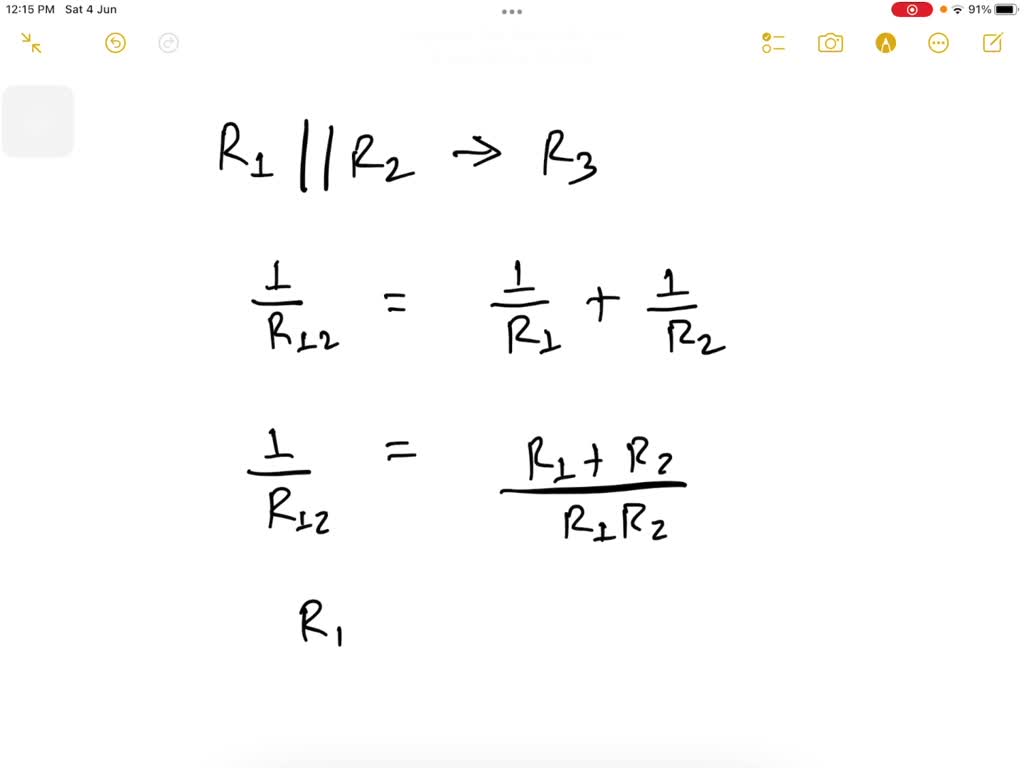 12:15 PM Sat 4 Jun 91%
R1 || R2 → R3
1/R12 = 1/R1 + 1/R2
1/R12 = R1 + R2/R1R2
R1